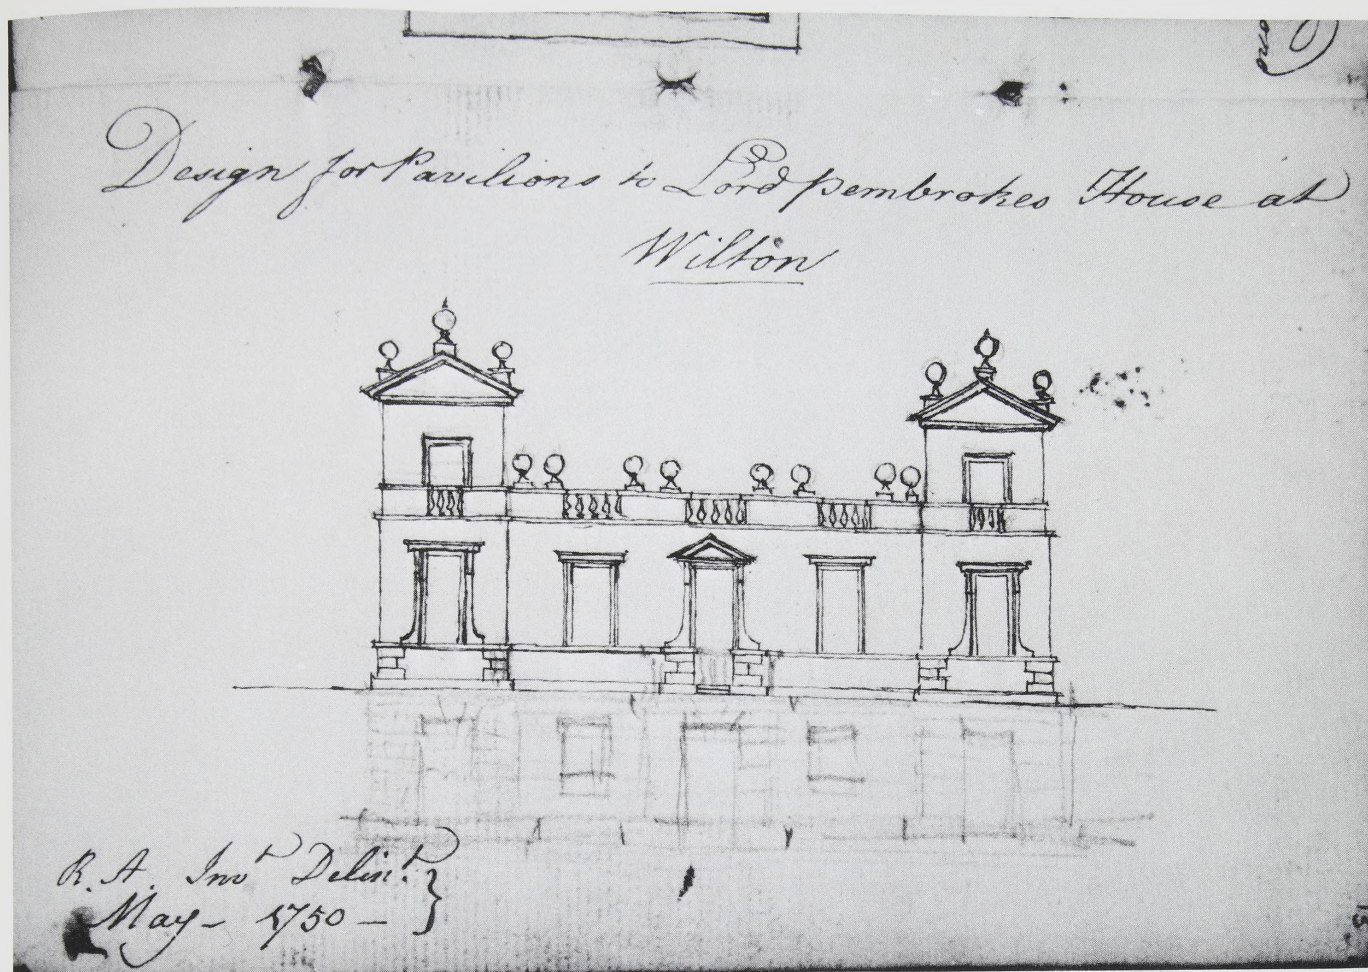 Design for Pavilions to Lord Pembrokes House at
Wilton
R. A. Invt Delint.
May - 1750 -